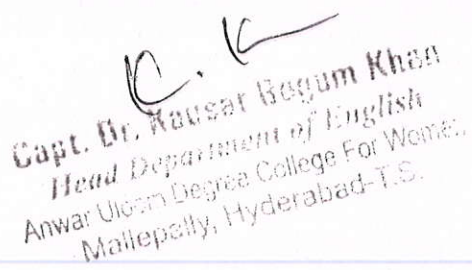 K. K
Capt. Dr. Kausar Begum Khan
Head Department of English
Anwar Uloom Degree College For Women,
Mallepally, Hyderabad-T.S.